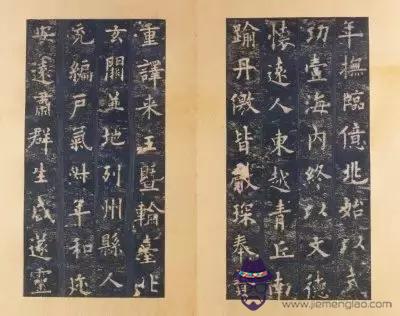 年撫臨億兆始以武
功壹海內終以文德
懷遠人東越青丘南
踰丹徼皆獻琛奉贄
重譯来王暨輪臺北
玄闕並地列州縣人
充編戶氣淑年和迩
安遠肅群生咸遂靈
www.jiemenglao.com